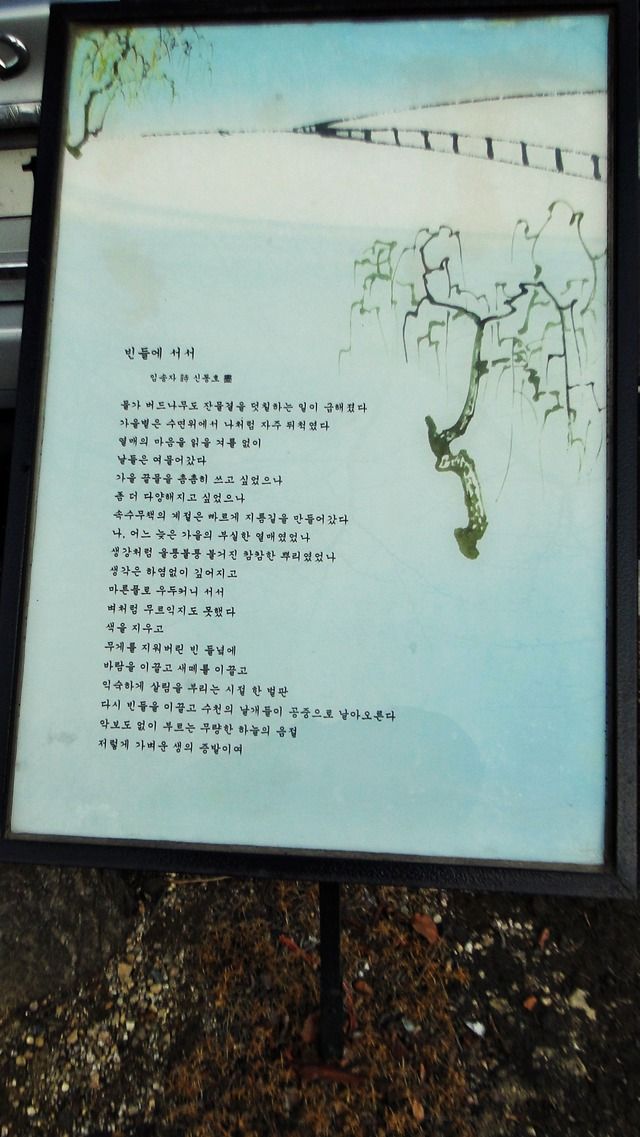 빈들에 서서
임송자 詩 신통호 畵
물가 버드나무도 잔물결을 덧칠하는 일이 급해졌다
가을볕은 수면위에서 나처럼 자주 뒤척였다
열매의 마음을 읽을 겨를 없이
날들은 여물어갔다
가을 끝물을 촘촘히 쓰고 싶었으나
좀 더 다양해지고 싶었으나
속수무책의 계절은 빠르게 지름길을 만들어갔다
나, 어느 늦은 가을의 부실한 열매였었나
생강처럼 울퉁불퉁 불거진 캄캄한 뿌리였었나
생각은 하염없이 깊어지고
마른풀로 우두커니 서서
벼처럼 무르익지도 못했다
색을 지우고
무게를 지워버린 빈 들녘에
바람을 이끌고 새떼를 이끌고
익숙하게 살림을 부리는 시절 한 벌판
다시 빈들을 이끌고 수천의 날개들이 공중으로 날아오른다
악보도 없이 부르는 무량한 하늘의 음절
저렇게 가벼운 생의 증발이여